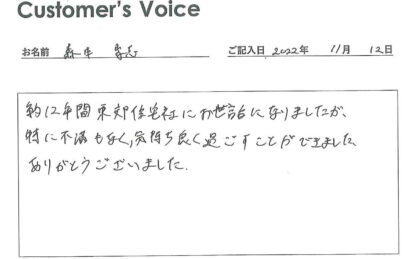 Customer's Voice
お名前 ご記入日 2022年 11月 12日
約12年間東郊住宅社にお世話になりましたが、
特に不満もなく、気持ち良く過ごすことができました
ありがとうございました.